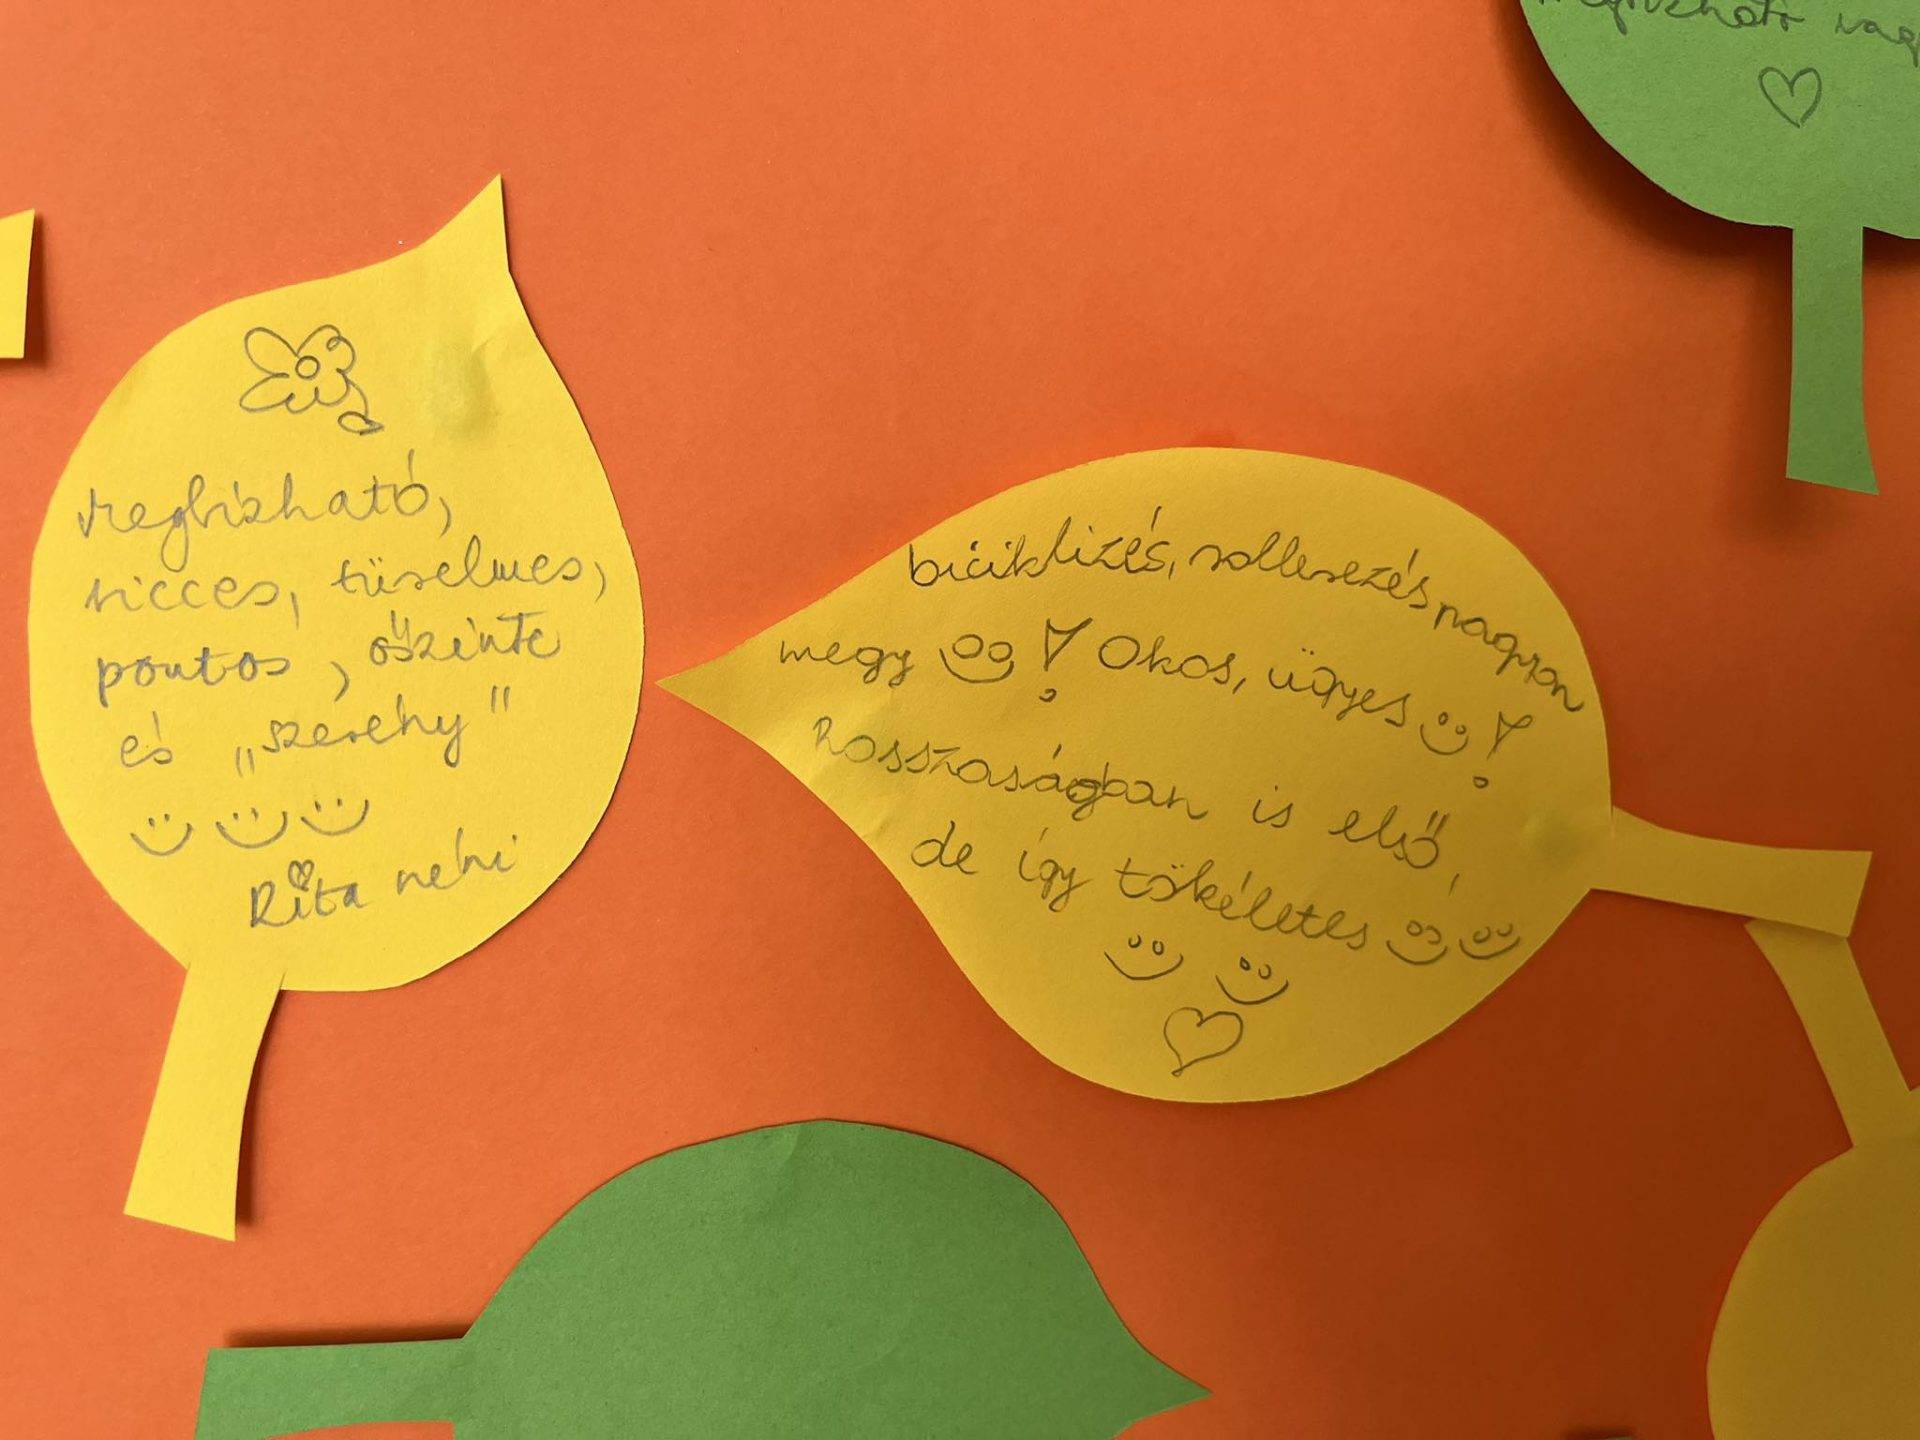 megbízható,
vicces, türelmes,
pontos, őszinte
és "szerény"
Rita néni
biciklizés, rollerezés nagyon
megy ! Okos, ügyes !
Rosszaságban is első,
de így tökéletes
megbízható vagy